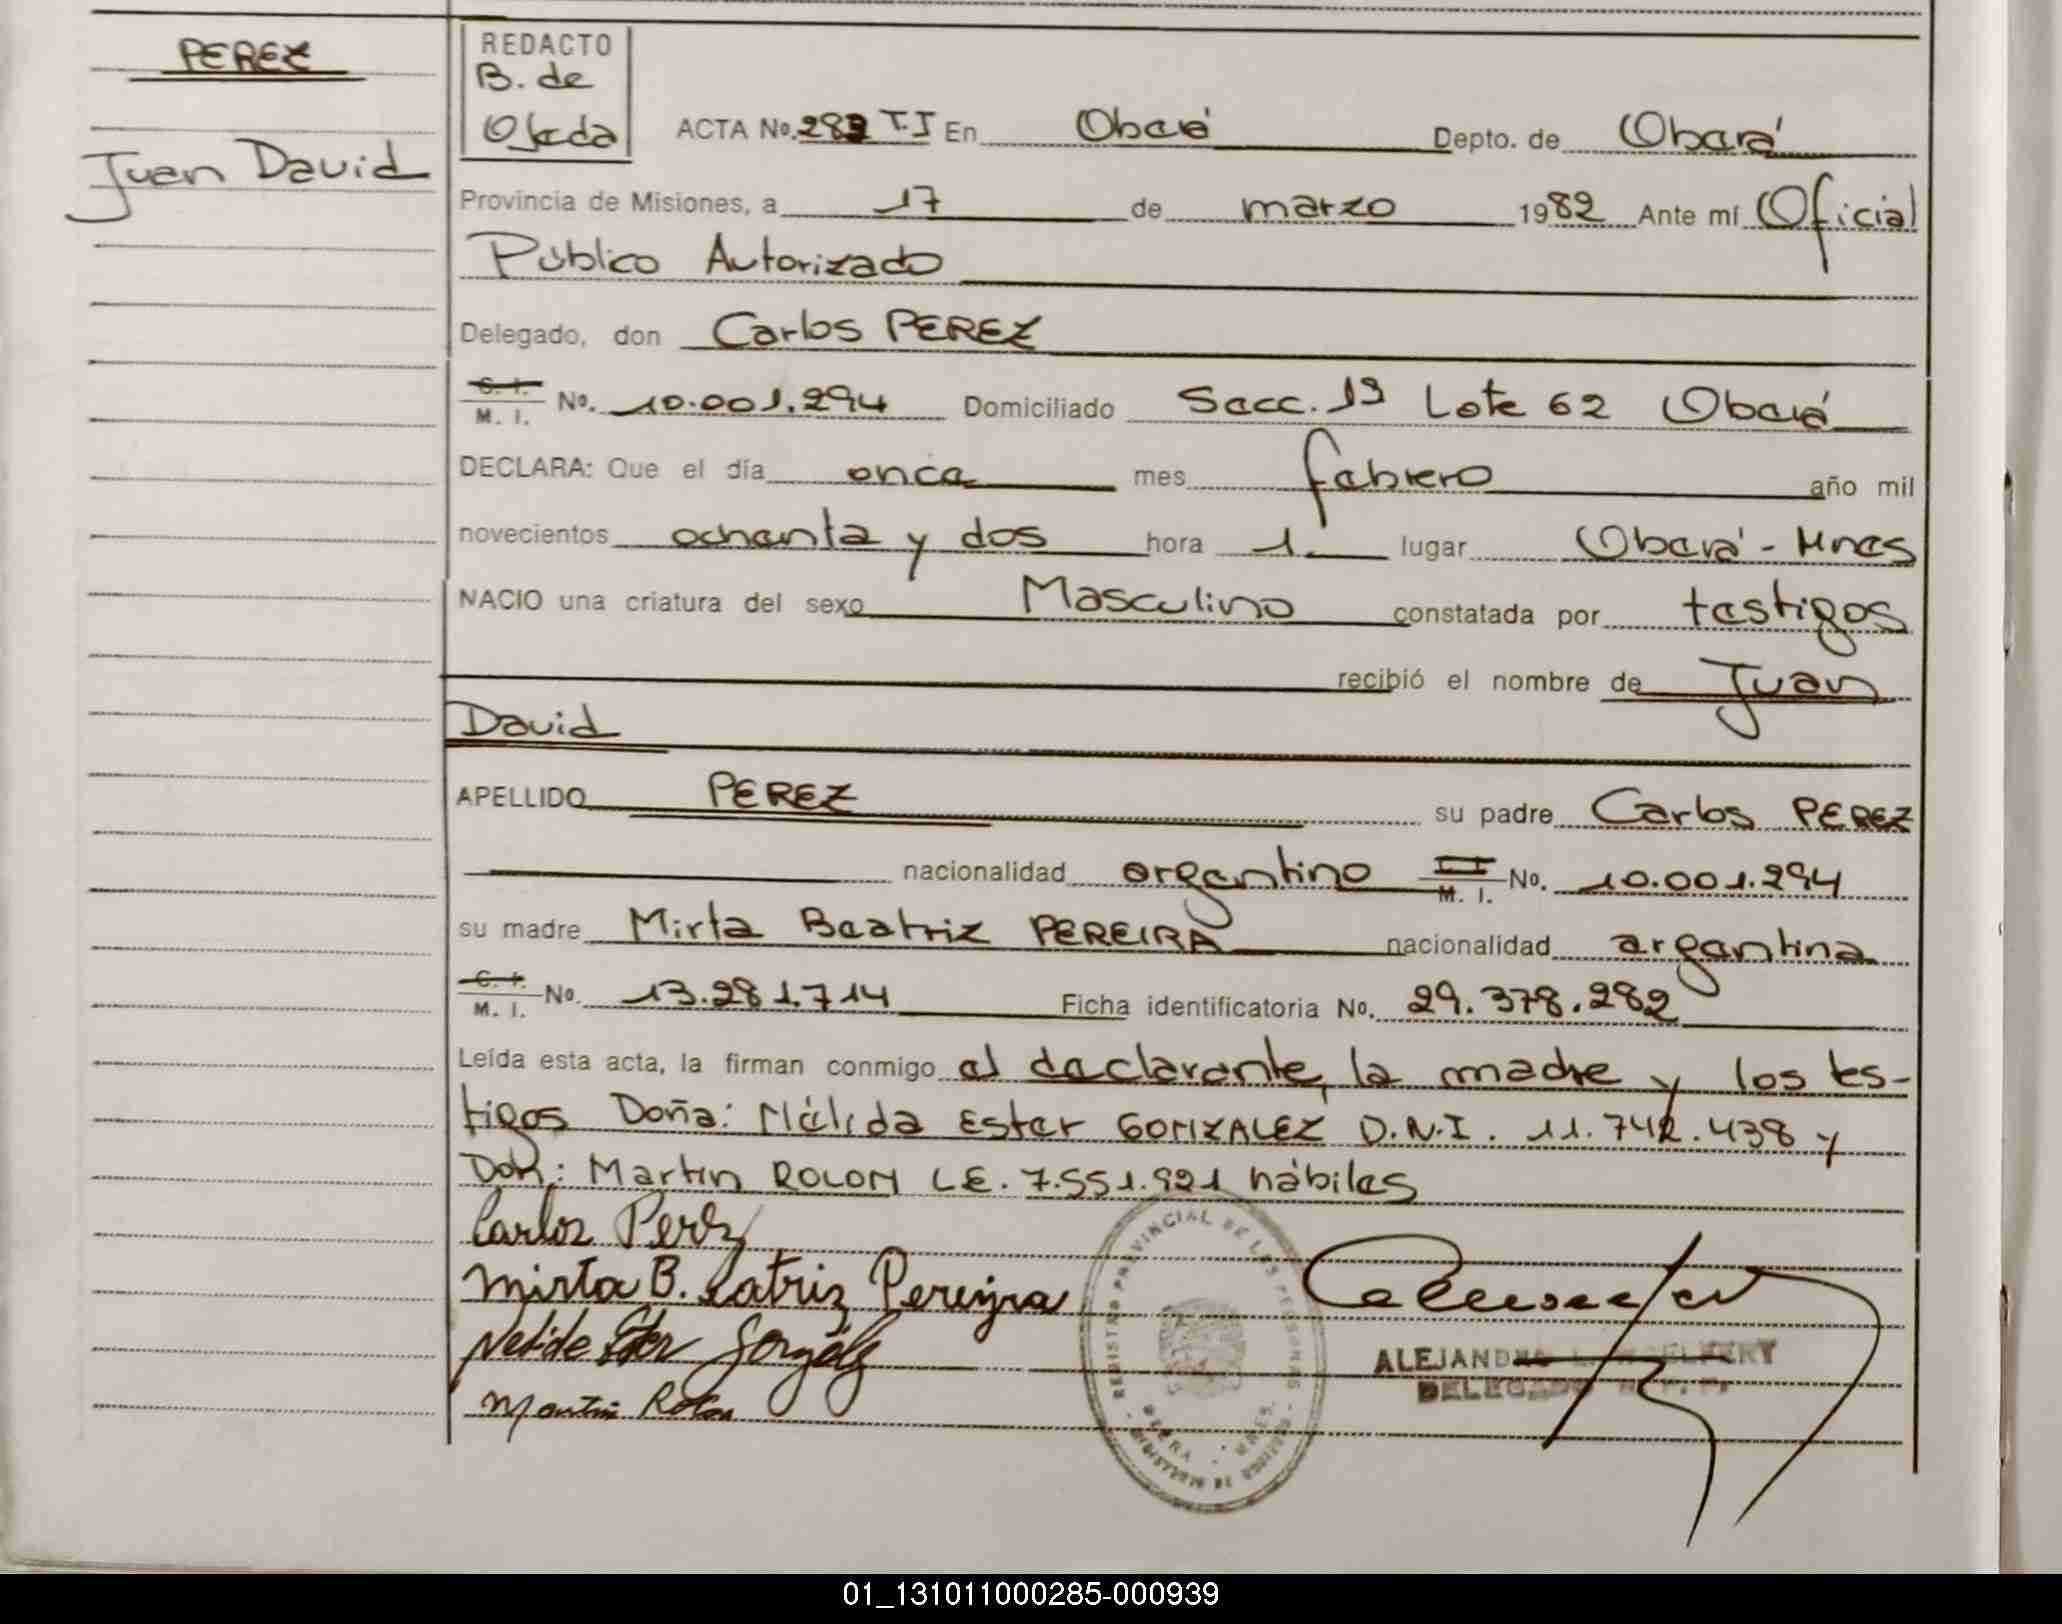 PEREZ
Juan David
REDACTO
B. de
Ojeda
ACTA No. 282 T.I En Oberá Depto. de Oberá
Provincia de Misiones, a 17 de marzo 1982 Ante mí Oficial
Público Autorizado
Delegado, don Carlos PEREZ
C. I.
M. I. No. 10.001.294 Domiciliado Secc. 1ª Lote 62 Oberá
DECLARA: Que el día once mes febrero año mil
novecientos ochenta y dos hora 1 lugar Oberá - Mnes
NACIO una criatura del sexo Masculino constatada por testigos
recibió el nombre de Juan
David
APELLIDO PEREZ su padre Carlos PEREZ
nacionalidad argentino M. I. No. 10.001.294
su madre Mirta Beatriz PEREIRA nacionalidad argentina
C. I.
M. I. No. 13.281.714 Ficha identificatoria No. 29.378.282
Leída esta acta, la firman conmigo el declarante, la madre y los tes-
tigos Doña: Nélida Ester GONZALEZ D.N.I. 11.742.438 y
Don: Martin ROLON L.E. 7.551.921 hábiles
Carlos Perez
Mirta Beatriz Pereyra
Nelide Ester González
Martin Rolon
REGISTRO PROVINCIAL DE LAS PERSONAS
OBERA
MNES.
ALEJANDRO L.
DELEGADO R. P. P.
01_131011000285-000939